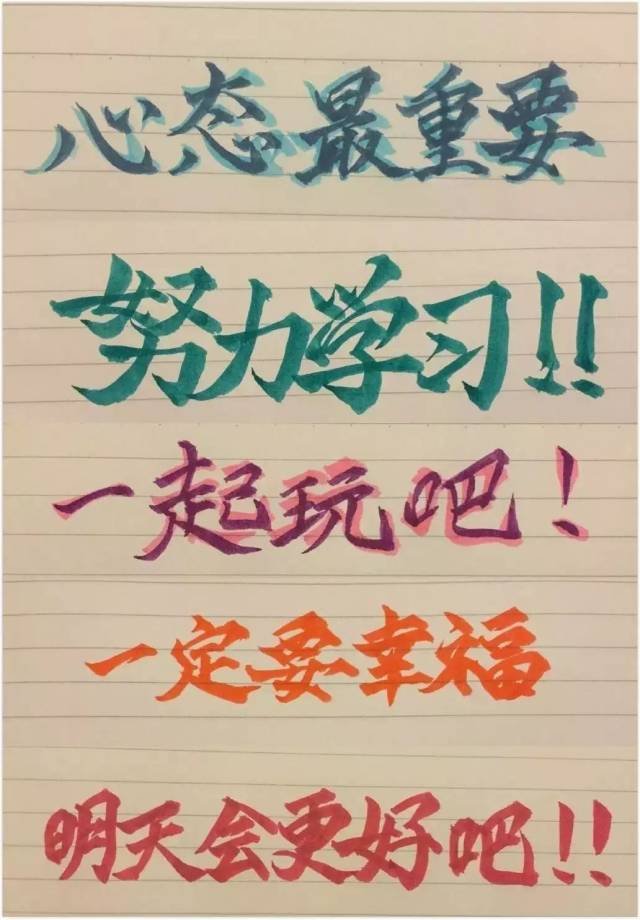 心态最重要
努力学习!!
一起玩吧!
一定要幸福
明天会更好吧!!